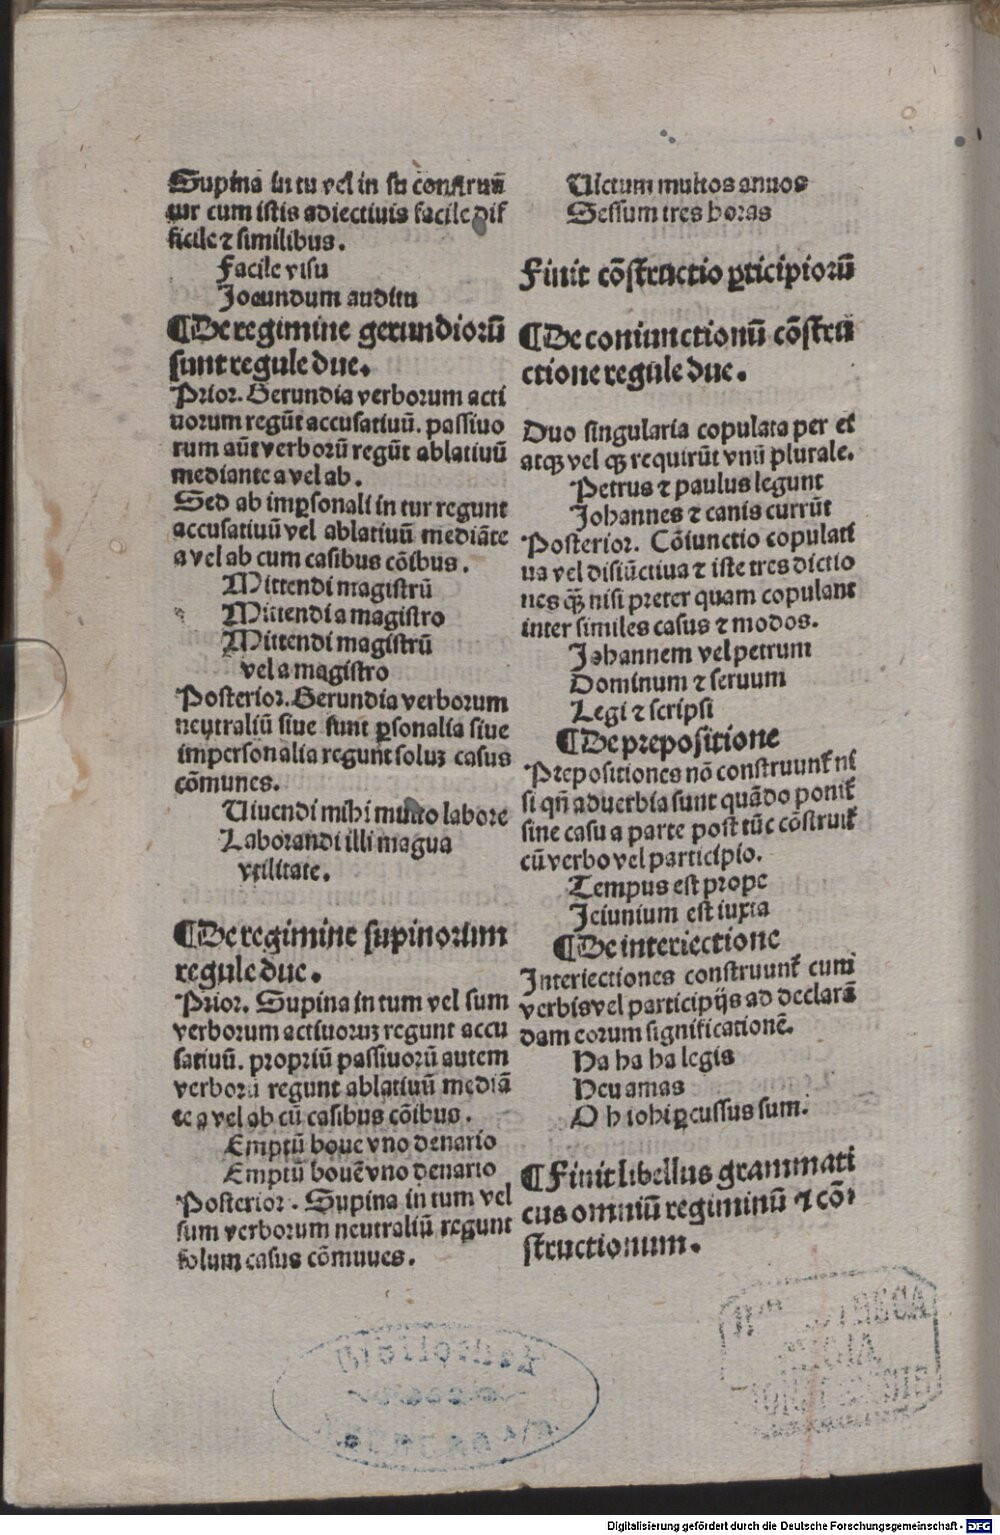 Supina in tu vel in su construū
tur cum istis adiectiuis facile dif
ficile ⁊ similibus.
Facile visu
Jocundum auditu
¶De regimine gerundiorū
sunt regule due.
Prior. Gerundia verborum acti
uorum regūt accusatiuū. passiuo
rum aūt verborū regūt ablatiuū
mediante a vel ab.
Sed ab imꝑsonali in tur regunt
accusatiuū vel ablatiuū mediāte
a vel ab cum casibus cōibus.
Mittendi magistrū
Mittendi a magistro
Mittendi magistrū
vel a magistro
Posterior. Gerundia verborum
neutraliū siue sunt ꝑsonalia siue
impersonalia regunt soluꝫ casus
cōmunes.
Uiuendi mihi multo labore
Laborandi illi magua
vtilitate.
¶De regimine supinorum
regule due.
Prior. Supina in tum vel sum
verborum actiuoruꝫ regunt accu
satiuū. propriū passiuorū autem
verborū regunt ablatiuū mediā
te a vel ab cū casibus cōibus.
Emptū boue vno denario
Emptū bouē vno denario
Posterior. Supina in tum vel
sum verborum neutraliū regunt
solum casus cōmuues.
Uictum multos annos
Sessum tres horas
Finit cōstructio ꝑticipiorū
¶De coniunctionū cōstru
ctione regule due.
Duo singularia copulata per et
atqꝫ vel qꝫ requirūt vnū plurale.
Petrus ⁊ paulus legunt
Johannes ⁊ canis currūt
Posterior. Cōiunctio copulati
ua vel disiūctiua ⁊ iste tres dictio
nes qꝫ̄ nisi preter quam copulant
inter similes casus ⁊ modos.
Johannem vel petrum
Dominum ⁊ seruum
Legi ⁊ scripsi
¶De prepositione
Prepositiones nō construunt̉ ni
si qn̄ aduerbia sunt quādo ponit̉
sine casu a parte post tūc cōstruit̉
cū verbo vel participio.
Tempus est prope
Jeiunium est iuxta
¶De interiectione
Interiectiones construunt̉ cum
verbis vel participijs ad declarā
dam eorum significationē.
Ha ha ha legis
Heu amas
O h iohi ꝑcussus sum.
¶Finit libellus grammati
cus omniū regiminū ⁊ cō⸗
structionum.
Digitalisierung gefördert durch die Deutsche Forschungsgemeinschaft - DFG